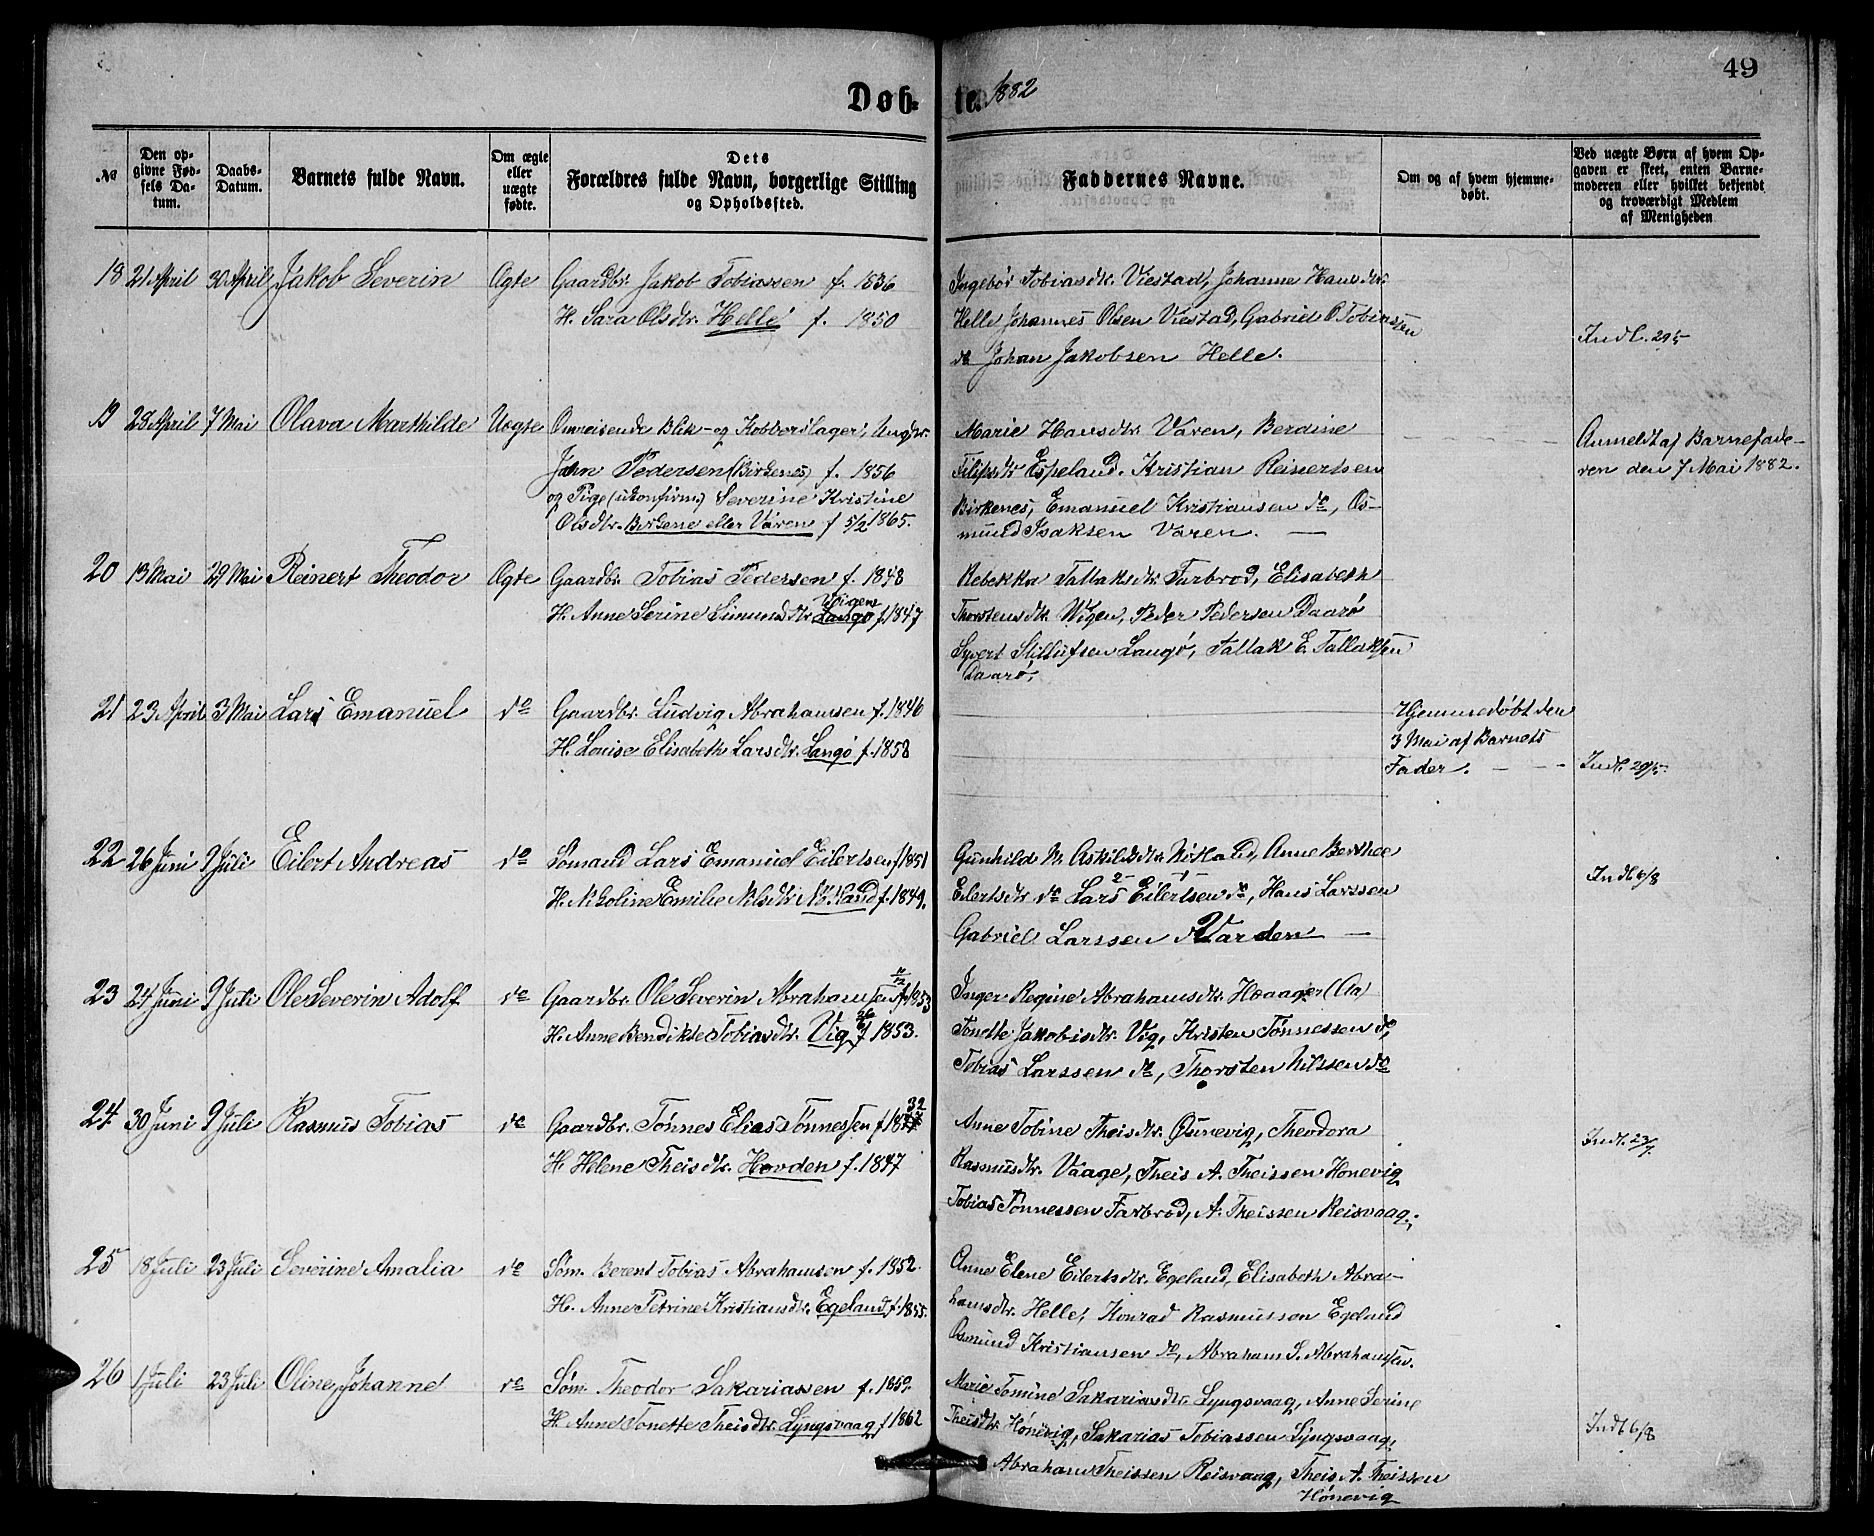 49
Døb- te. 1882
No
Den op-
givne Fød-
sels Da-
tum.
Daabs-
Datum.
Barnets fulde Navn.
Om ægte
eller
uægte
fødte.
Dets
Forældres fulde Navn, borgerlige Stilling
og Opholdssted.
Faddernes Navne.
Om og af hvem hjemme-
døbt.
Ved uægte Børn af hvem Op-
gaven er skeet, enten Barne-
moderen eller hvilket bekjendt
og troværdigt Medlem
af Menigheden
18 21 April 30 April Jakob Severin Ægte Gaardbr. Jakob Tobiassen f. 1836
H. Sara Olsdtr. Helle f. 1850
Ingebor Tobiasdtr. Viestad, Johanne Hansdtr.
Helle Johannes Olsen Viestad, Gabriel O Tobiassen
do Johan Jakobsen Helle.
Indl. 29/5
19 28 April 7 Mai Olava Marthilde Uægte Omreisende Blik- og Kobberslager, Ungkr.
John Pedersen (Birkenes) f. 1856
og Pige (ukonfirm.) Severine Kristine
Olsdtr. Birkene eller Våren f 5/2 1865.
Marie Hansdtr. Våren, Berdine
Filipsdtr Espeland. Kristian Reinertsen
Birkenes, Emanuel Kristiansen do, Os-
mund Isaksen Våren.
Anmeldt af Barnefade-
ren den 7 Mai 1882.
20 13 Mai 29 Mai Reinert Theodor Ægte Gaardbr. Tobias Pedersen f. 1848
H. Anne Serine Simunsdtr Langø f. 1847
Vigen
Rebekka Tallaksdtr Farbrod, Elisabeth
Thorstensdtr. Wigen, Peder Pedersen Daarø
Syvert Langø, Tallak E. Tallaksen
Daarø,
21 23 April 3 Mai Lars Emanuel do Gaardbr. Ludvig Abrahamsen f. 1846
H. Louise Elisabeth Larsdtr. Langø f. 1858
Hjemmedøbt den
3 Mai af Barnets
Fader.
Indl. 29/5
22 26 Juni 9 Juli Eilert Andreas do Sømand Lars Emanuel Eilertsen f. 1851
H. Nikoline Emilie Nilsdtr Nötland f. 1849.
Gunhild M. Askildsdtr. Nötland, Anne Berthea
Eilertsdtr do Lars Eilertsen do, Hans Larssen
Gabriel Larssen Varden
Indl 6/8
23 24 Juni 9 Juli Ole Severin Adolf do Gaardbr. Ole Severin Abrahamsen f. 11/12 1853
H. Anne Bendikte Tobiasdtr. Vig f 1853.
Inger Regine Abrahamsdtr. Haager (Aa)
Tonette Jakobsdtr. Vig, Kristen Tønnessen do,
Tobias Larssen do, Thorsten Nilssen do
24 30 Juni 9 Juli Rasmus Tobias do Gaardbr. Tønnes Elias Tønnessen f 1832
H. Helene Theisdtr. Hovden f. 1847
Anne Tobine Theisdtr. Qvinevig, Theodora
Rasmusdtr. Vaage, Theis A. Theissen Hønevig
Tobias Tønnessen Farbrod, A. Theissen Reisvaag.
Indl. 23/7
25 18 Juli 23 Juli Severine Amalia do Søm. Berent Tobias Abrahamsen f. 1852.
H. Anne Petrine Kristiansdtr. Egeland f. 1855.
Anne Elene Eilertsdtr. Egeland, Elisabeth Abra-
hamsdtr. Helle, Konrad Rasmussen Egeland
Osmund Kristiansen do, Abraham S. Abrahamsen.
26 1 Juli 23 Juli Oline Johanne do Søm. Theodor Sakariassen f. 1859.
H. Anne Tonette Theisdtr. Lyngsvaag f 1862
Marie Tomine Sakariasdtr. Lyngsvaag, Anne Serine
Theisdtr. Hønevig, Sakarias Tobiassen Lyngsvaag,
Abraham Theissen Reisvaag, Theis A. Theissen
Hønevig
Indl 6/8